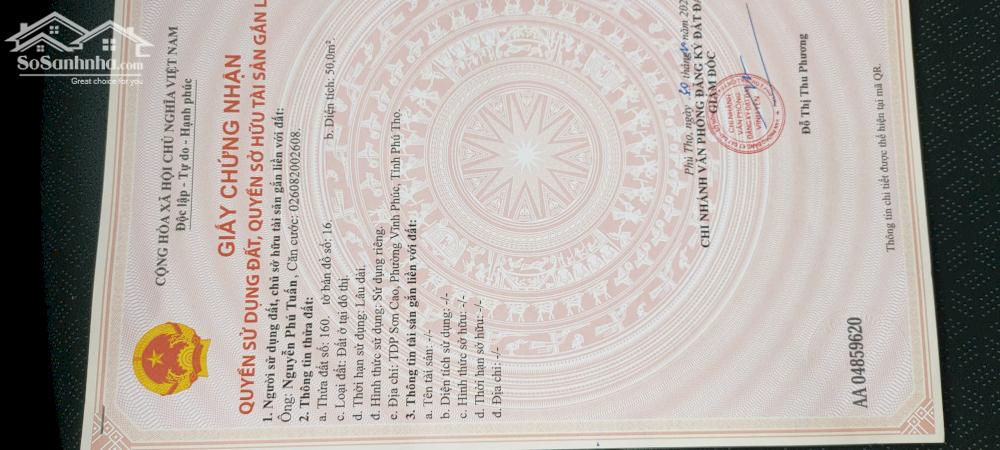 SoSanhnha.com
Great choice for you
CỘNG HÒA XÃ HỘI CHỦ NGHĨA VIỆT NAM
Độc lập - Tự do - Hạnh phúc
GIẤY CHỨNG NHẬN
QUYỀN SỬ DỤNG ĐẤT, QUYỀN SỞ HỮU TÀI SẢN GẮN L
1. Người sử dụng đất, chủ sở hữu tài sản gắn liền với đất:
Ông: Nguyễn Phú Tuấn, Căn cước: 026082002608.
2. Thông tin thửa đất:
a. Thửa đất số: 160. tờ bản đồ số: 16. b. Diện tích: 50,0m².
c. Loại đất: Đất ở tại đô thị.
d. Thời hạn sử dụng: Lâu dài.
đ. Hình thức sử dụng: Sử dụng riêng.
e. Địa chỉ: TDP Sơn Cao, Phường Vĩnh Phúc, Tỉnh Phú Thọ.
3. Thông tin tài sản gắn liền với đất:
a. Tên tài sản: -/-
b. Diện tích sử dụng: -/-
c. Hình thức sở hữu: -/-
d. Thời hạn sở hữu: -/-
đ. Địa chỉ: -/-
Phú Thọ, ngày tháng năm 202
CHI NHÁNH VĂN PHÒNG ĐĂNG KÝ ĐẤT ĐA
GIÁM ĐỐC
CHI NHÁNH
VĂN PHÒNG
ĐĂNG KÝ ĐẤT ĐAI
VĨNH YÊN
Đỗ Thị Thu Phương
Thông tin chi tiết được thể hiện tại mã QR.
AA 04859620